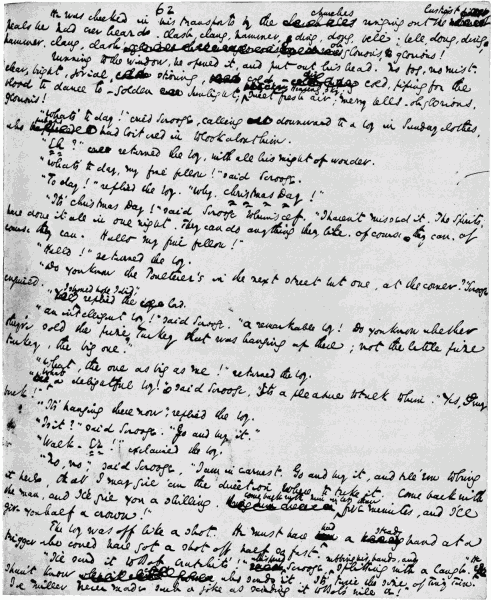 62
He was checked in his transports by the churches ringing out the lustiest
peals he had ever heard. Clash, clang, hammer, ding, dong, bell. Bell, dong, ding,
hammer, clang, clash glorious, glorious!
Running to the window, he opened it, and put out his head. No fog, no mist.
clear, bright, jovial, stirring, cold, cold, piping for the
blood to dance to - Golden sunlight, sweet fresh air, merry bells. Oh, glorious,
glorious!
"What's to day!" cried Scrooge, calling downward to a boy in Sunday clothes,
who had loitered in to look about him.
"Eh?" returned the boy, with all his might of wonder.
"What's to day, my fine fellow!" said Scrooge.
"To day!" replied the boy. "Why, Christmas Day!"
"It's Christmas Day!" said Scrooge to himself. "I haven't missed it. The Spirits
have done it all in one night. They can do anything they like. Of course they can, of
course they can. Hallo my fine fellow!"
"Hallo!" returned the boy.
"Do you know the Poulterer's in the next street but one, at the corner?" Scrooge
enquired.
"I should hope I did," replied the lad.
"An intelligent boy!" said Scrooge. "a remarkable boy! Do you know whether
they've sold the prize Turkey that was hanging up there; not the little prize
turkey, the big one."
"What, the one as big as me!" returned the boy.
"What a delightful boy!" said Scrooge, It's a pleasure to talk to him. "Yes, my
buck."
"It's hanging there now," replied the boy.
"Is it?" said Scrooge. "Go and buy it."
"Walk-Er!" exclaimed the boy.
"No, no," said Scrooge, "I am in earnest. Go and buy it, and tell 'em to bring
it here, that I may give 'em the direction where to take it. Come back with
the man, and I'll give you a shilling. Come back with him in less than five minutes, and I'll
give you half a crown!"
The boy was off like a shot. He must have had a steady hand at a
trigger who could have got a shot off half so fast.
"I'll send it to Bob Cratchit's!" Scrooge, rubbing his hands, and splitting with a laugh. "He
shan't know who sends it. It's twice the size of Tiny Tim.
Joe Miller never made such a joke as sending it to Bob's will be!"